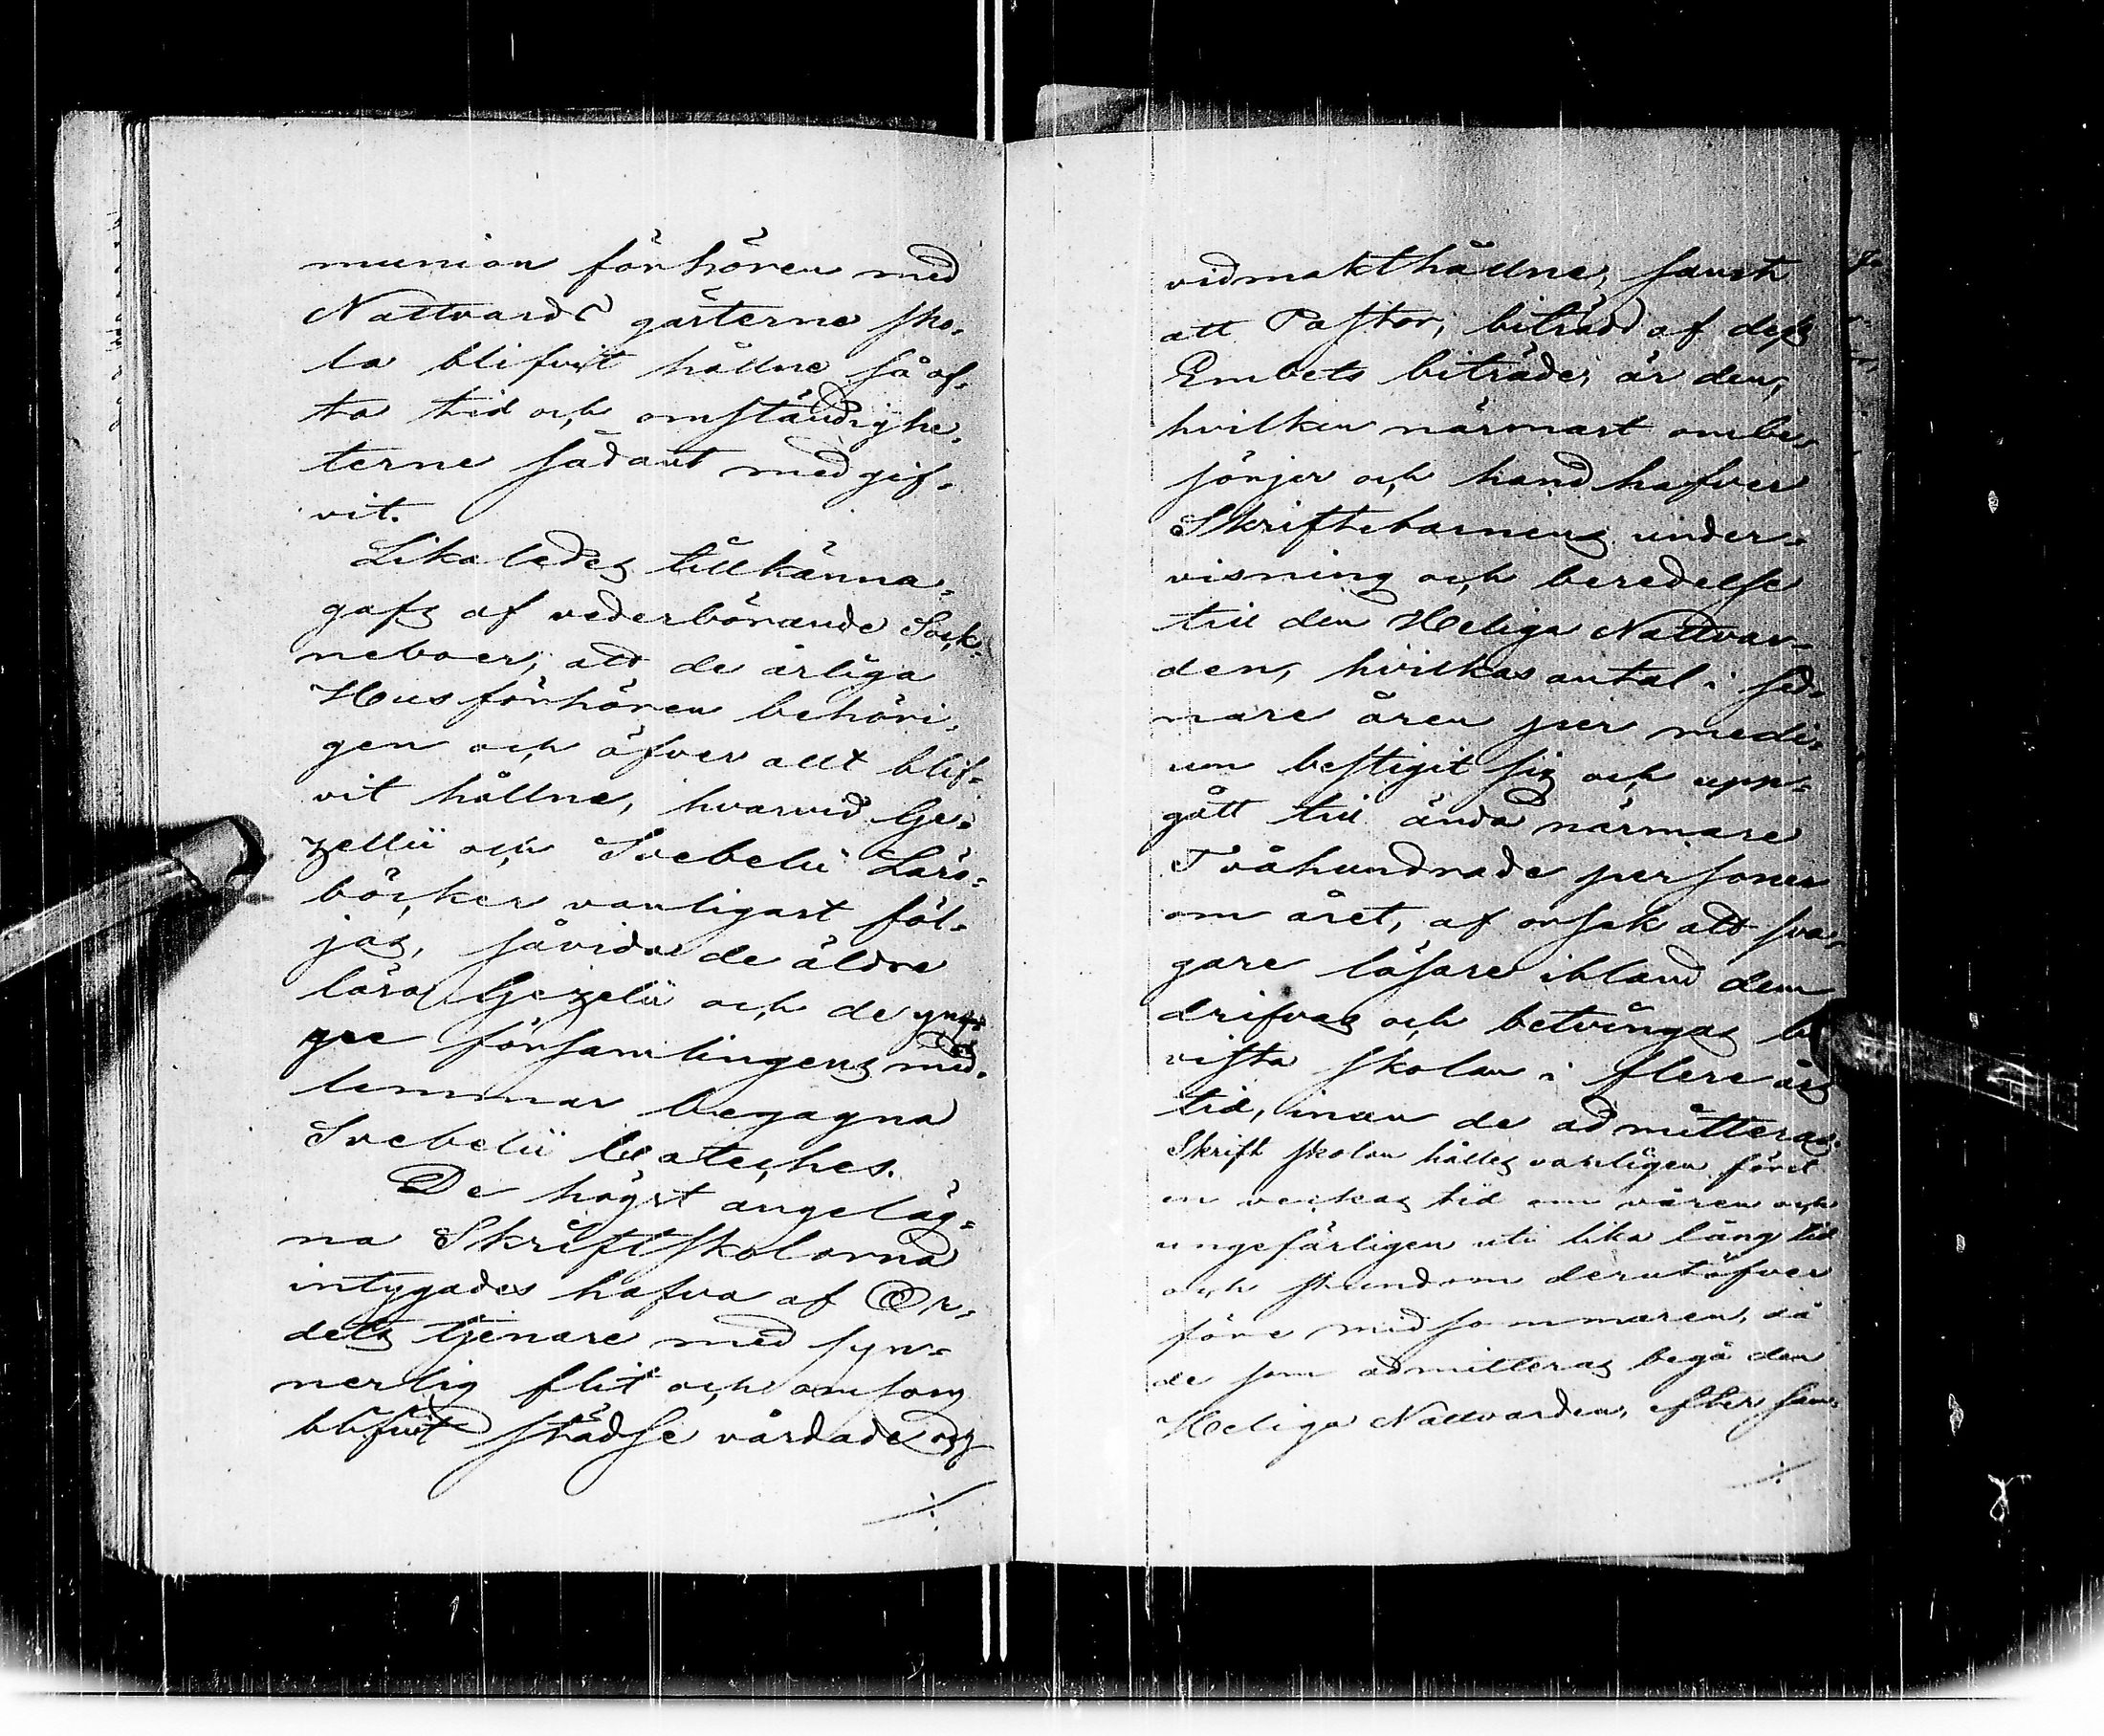 munion förhören med
Nattvards gästerne sko-
la blifvit hållne så of-
ta tid och omständighe-
terne sådant medgif-
vit.
Likaledes tillkänna-
gafs af vederbörande Sock-
neboer, att de årliga
Husförhören behöri-
gen och öfver allt blif-
vit hållne, hvarvid Ge-
zellii och Svebelii Läro-
böcker vanligast föl-
jas, såvida de äldre
lära Gezelii och de yn-
gre församlingens med-
lemmar begagna
Svebelii Cateches.
De högst angeläg-
na Skriftskolorna
intygades hafva af Or-
dets tjenare med syn-
nerlig flit och omsorg
blifvit städse vårdade och
./.
vidmakthållne, samt
att Pastor, biträdd af dess
Embets biträde, är den,
hvilken närmast ombe-
sörjer och handhafver
Skriftebarnens under-
visning och beredelse
till den Heliga Nattvar-
den, hvilkas antal i sed-
nare åren per medi-
um bestigit sig och upp-
gått till ända närmare
Tvåhundrade personer
om året, af orsak att sva-
gare läsare ibland dem
drifvas och betvingas be-
vista skolan i flere års
tid, innan de admitteras.
Skrift skolan hålles vanligen först
en veckas tid om våren och
ungefärligen uti lika lång tid
och stundom derutöfver
före midsommaren, då
de som admitteras begå den
Heliga Nattvarden, efter sam-
./.